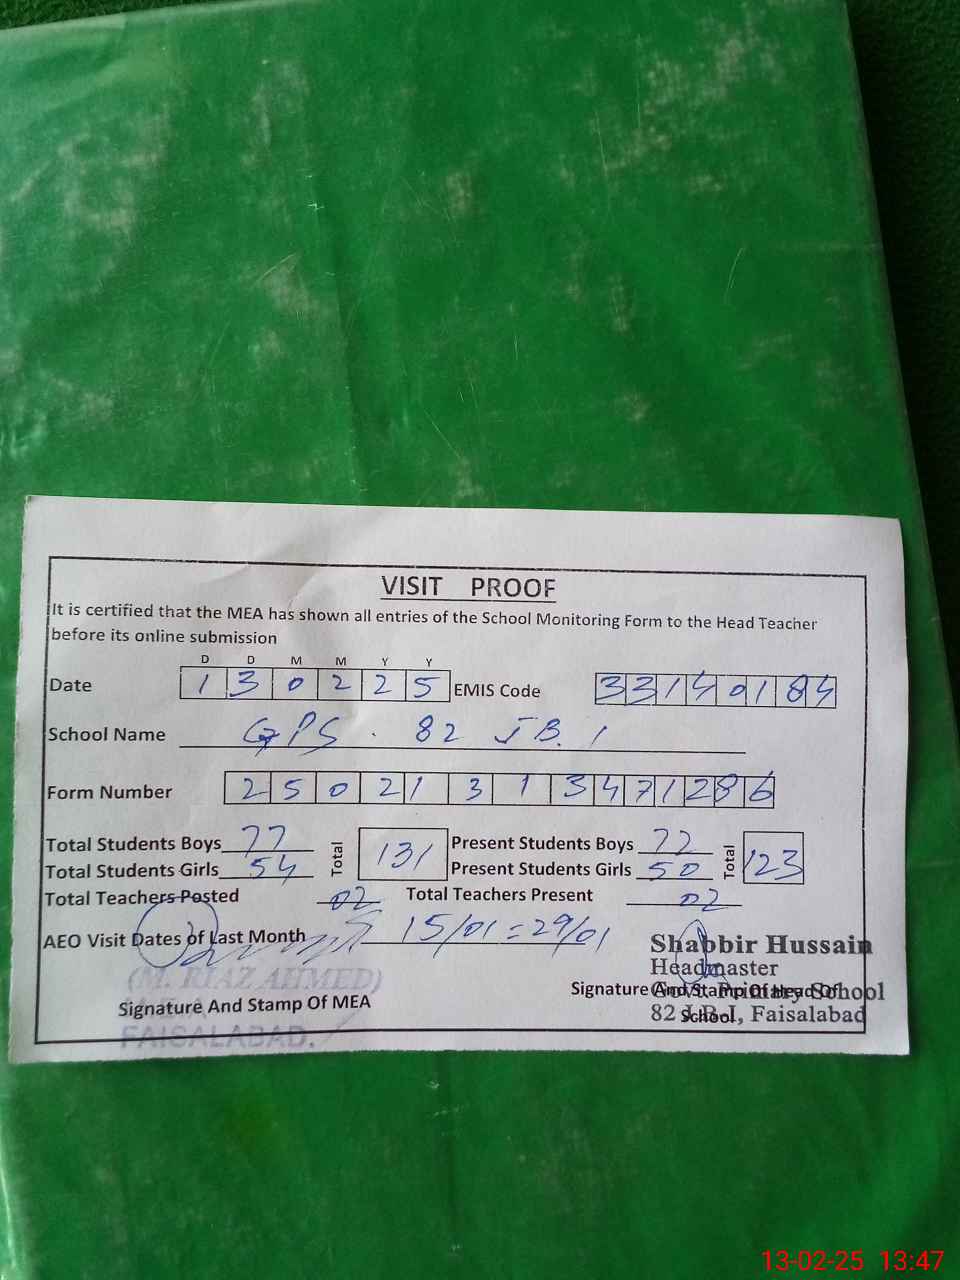 VISIT PROOF
It is certified that the MEA has shown all entries of the School Monitoring Form to the Head Teacher
before its online submission
D D M M Y Y
Date 1 3 0 2 2 5 EMIS Code 33140184
School Name GPS. 82 JB. 1
Form Number 25021313471286
Total Students Boys 77 Total 131 Present Students Boys 72 Total 123
Total Students Girls 54 Present Students Girls 50
Total Teachers Posted 02 Total Teachers Present 02
AEO Visit Dates of Last Month 15/01 = 29/01
(M. RIAZ AHMED)
Signature And Stamp Of MEA
FAISALABAD.
Shabbir Hussain
Headmaster
Signature And Stamp Of Head Of
School
Primary School
82 J.B-I, Faisalabad
13-02-25 13:47